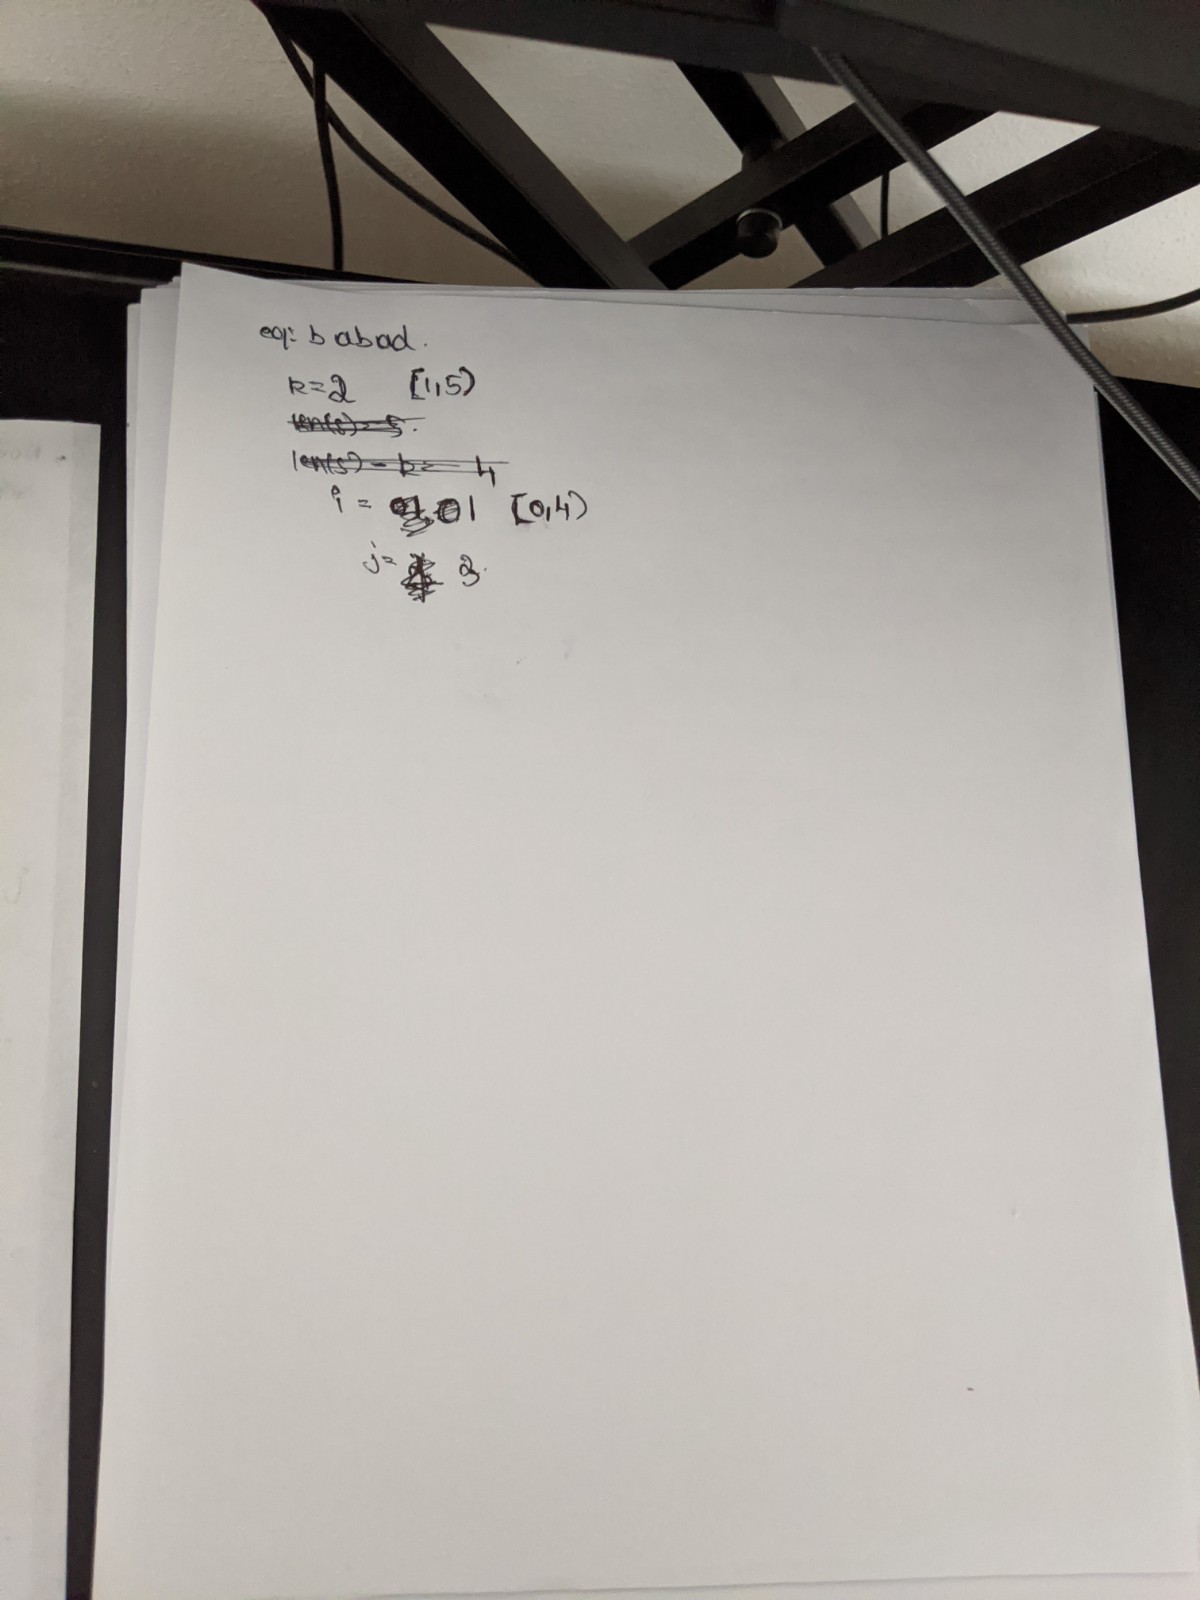 eg: babad.
k=2 [1,5)
len(s)=5.
len(s)-k= 4
i = 1 [0,4)
j= 3.